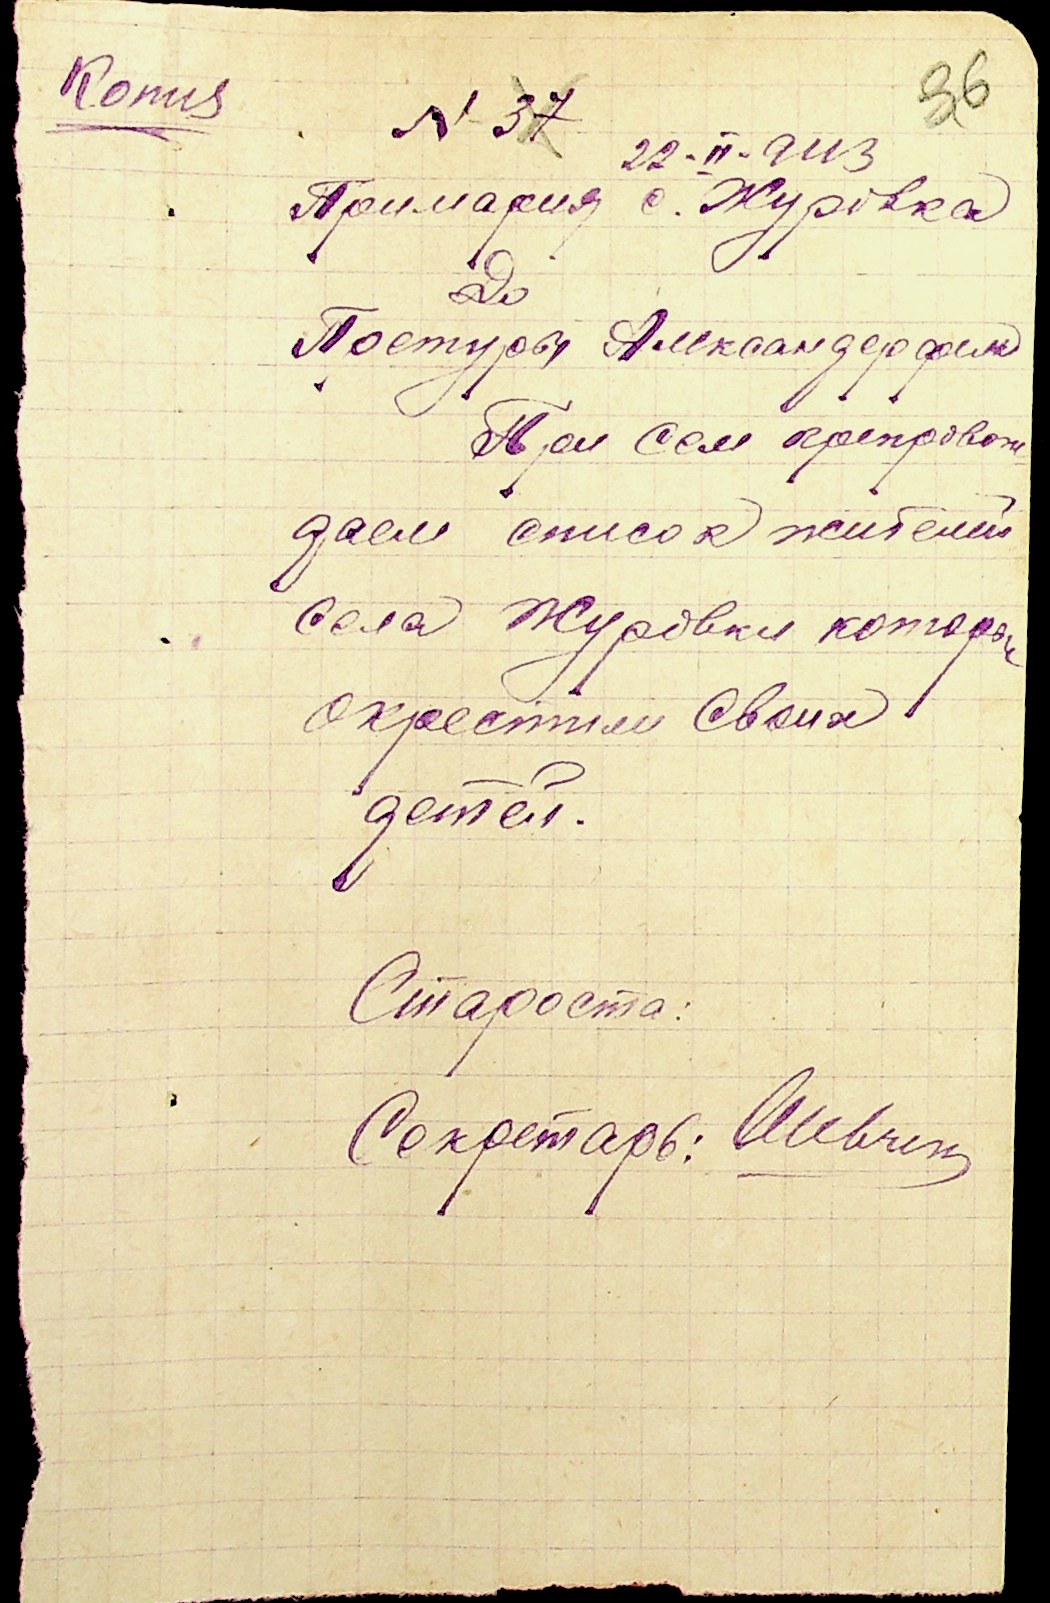 Копия
36
№ 37
22-II-943
Примария с. Журовка
До
Постуры Александерфельд
При сем препровож-
даем список жителей
села Журовки которые
окрестили своих
детей.
Староста:
Секретарь: Шевчен